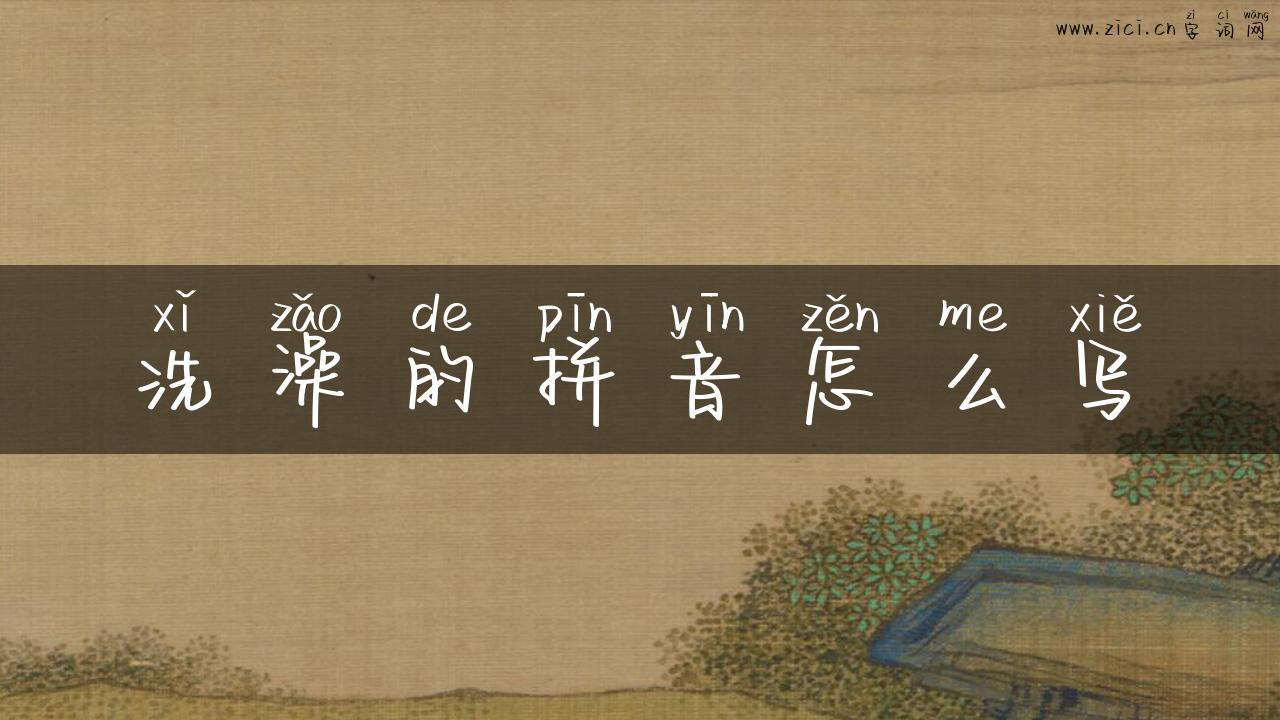 zì cí wǎng
www.zici.cn 字词网
xǐ zǎo de pīn yīn zěn me xiě
洗澡的拼音怎么写